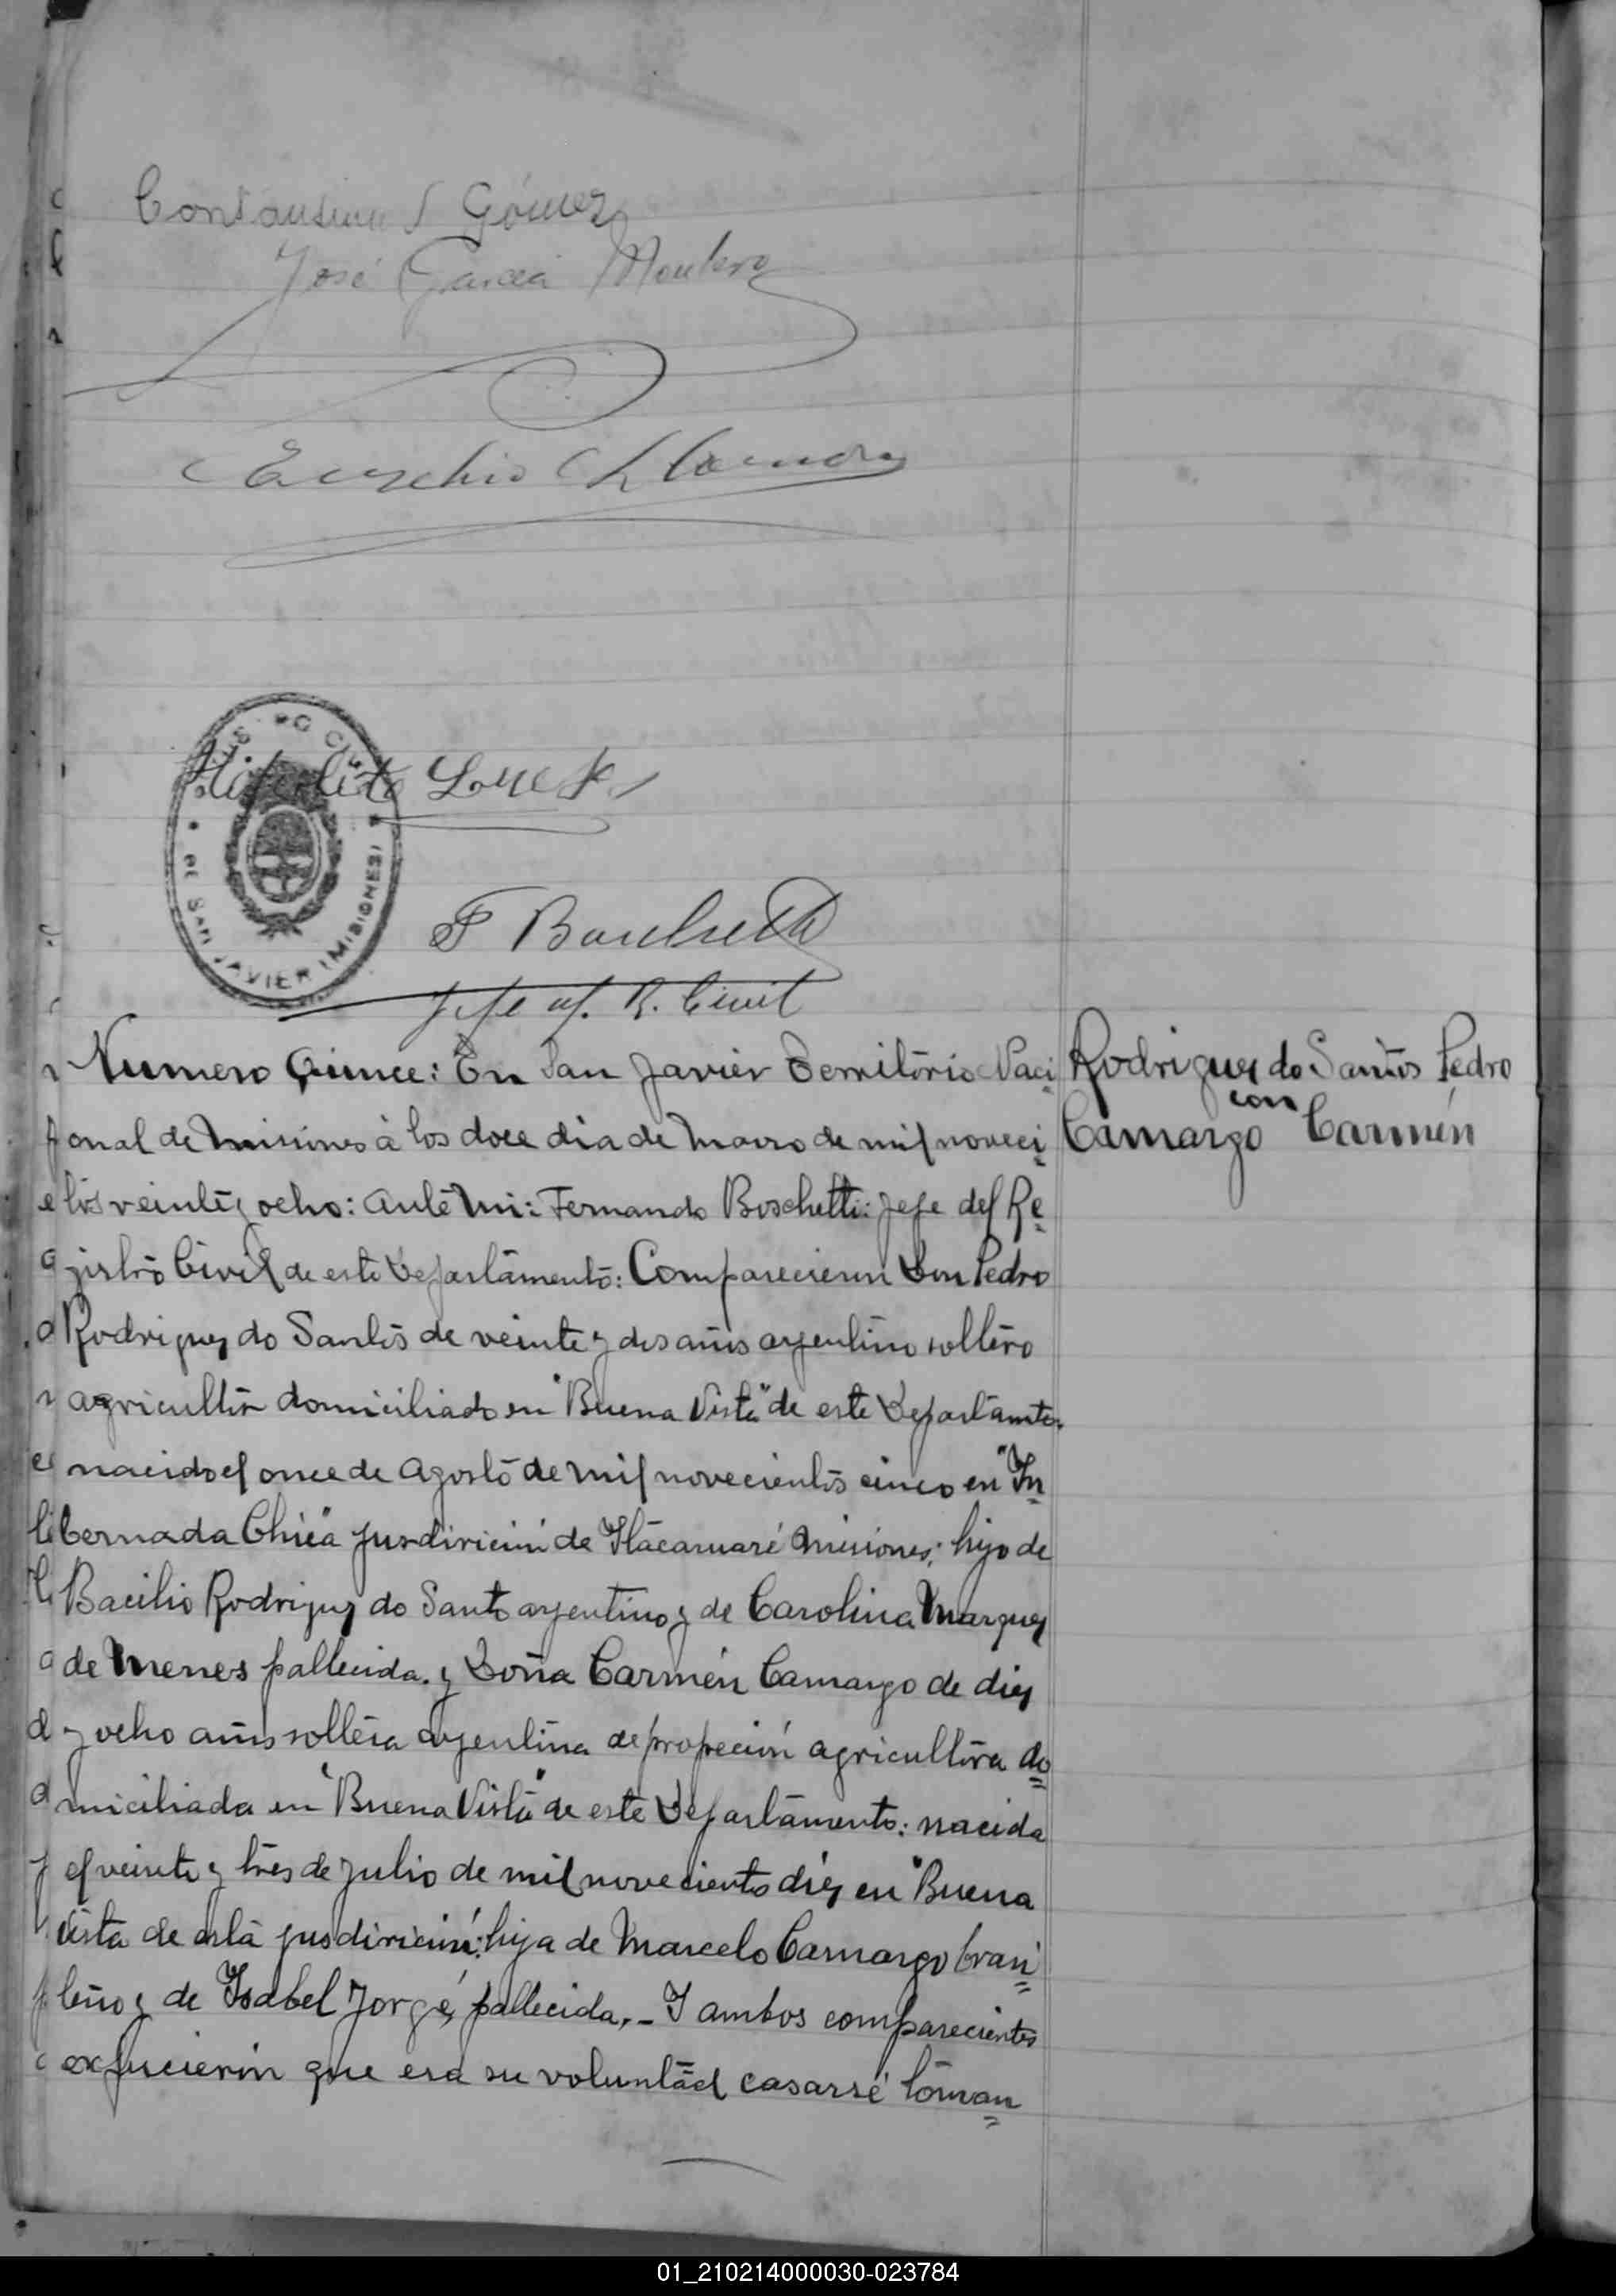 José García Montero
Eusebio
Hipolito
DE SAN JAVIER (MISIONES)
Jefe of. R. Civil
Numero Quince: En San Javier Territorio Naci
onal de Misiones à los doce dia de Marzo de mil noveci
tos veinte y ocho: Ante Mi: Fernando Boschetti: Jefe del Re
jistro Civil de este Departamento: Comparecieron Don Pedro
Rodriguez do Santos de veinte y dos años argentino soltero
agricultor domiciliado en "Buena Vista" de este Departamto.
nacido el once de Agosto de mil novecientos cinco en "In
bernada Chica jusdirición de Itacaruaré Misiones; hijo de
Bacilio Rodriguez do Santo argentino y de Carolina Marquez
de Menes fallecida. y Doña Carmén Camargo de diez
y ocho años soltera argentina de profeción agricultora do
miciliada en "Buena Vista" de este Departamento: nacida
el veinte y tres de Julio de mil novecientos diez en "Buena
Vista de esta jusdirición: hija de Marcelo Camargo brasi
leño y de Ysabel Jorge, fallecida. - I ambos comparecientes
expucierón que era su voluntad casarsé tóman
Rodriguez do Santos Pedro
con
Camargo Carmén
01_210214000030-023784